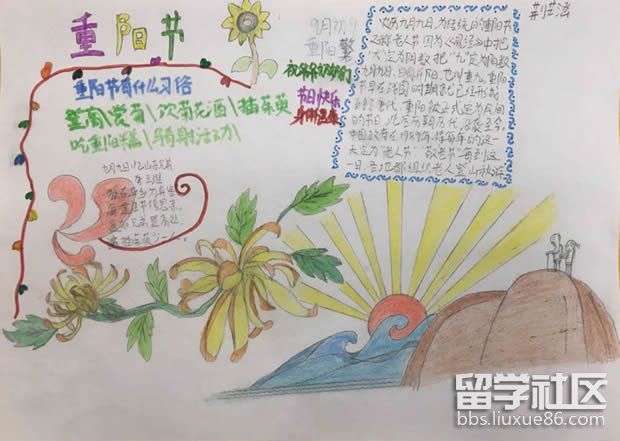 重阳节
荆芷涵
重阳节有什么习俗
登高\赏菊\饮菊花酒\插茱萸
吃重阳糕\骑射活动\
九月初九
重阳
祝爷爷奶奶们
节日快乐
身体健康
农历九月九日,为传统的重阳节
又称老人节因为《易经》中把
"六"定为阴数把"九"定为阳数
九月九日,
节早在战国时期就已经形成
到了唐代重阳被正式定为民间
的节日,此后历朝历代沿袭至今,
中国政府在1989年将每年的这一
天定为"老人节""敬老节"每到这
一日各地都组织老人登山秋游
九月九日忆山东兄弟
王维
独在异乡为异客
每逢佳节倍思亲
遥知兄弟登高处
遍插茱萸少一人。
留学社区
bbs.liuxue86.com